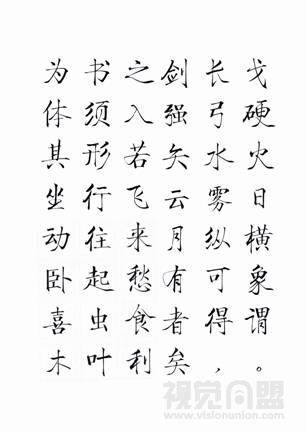 为书之
体须入
其形若
坐行飞
动往来
卧起愁
喜虫食
木叶利
剑长戈
强弓硬
矢水火
云雾日
月纵横
有可象
者得谓
矣，。
视觉同盟
www.visionunion.com